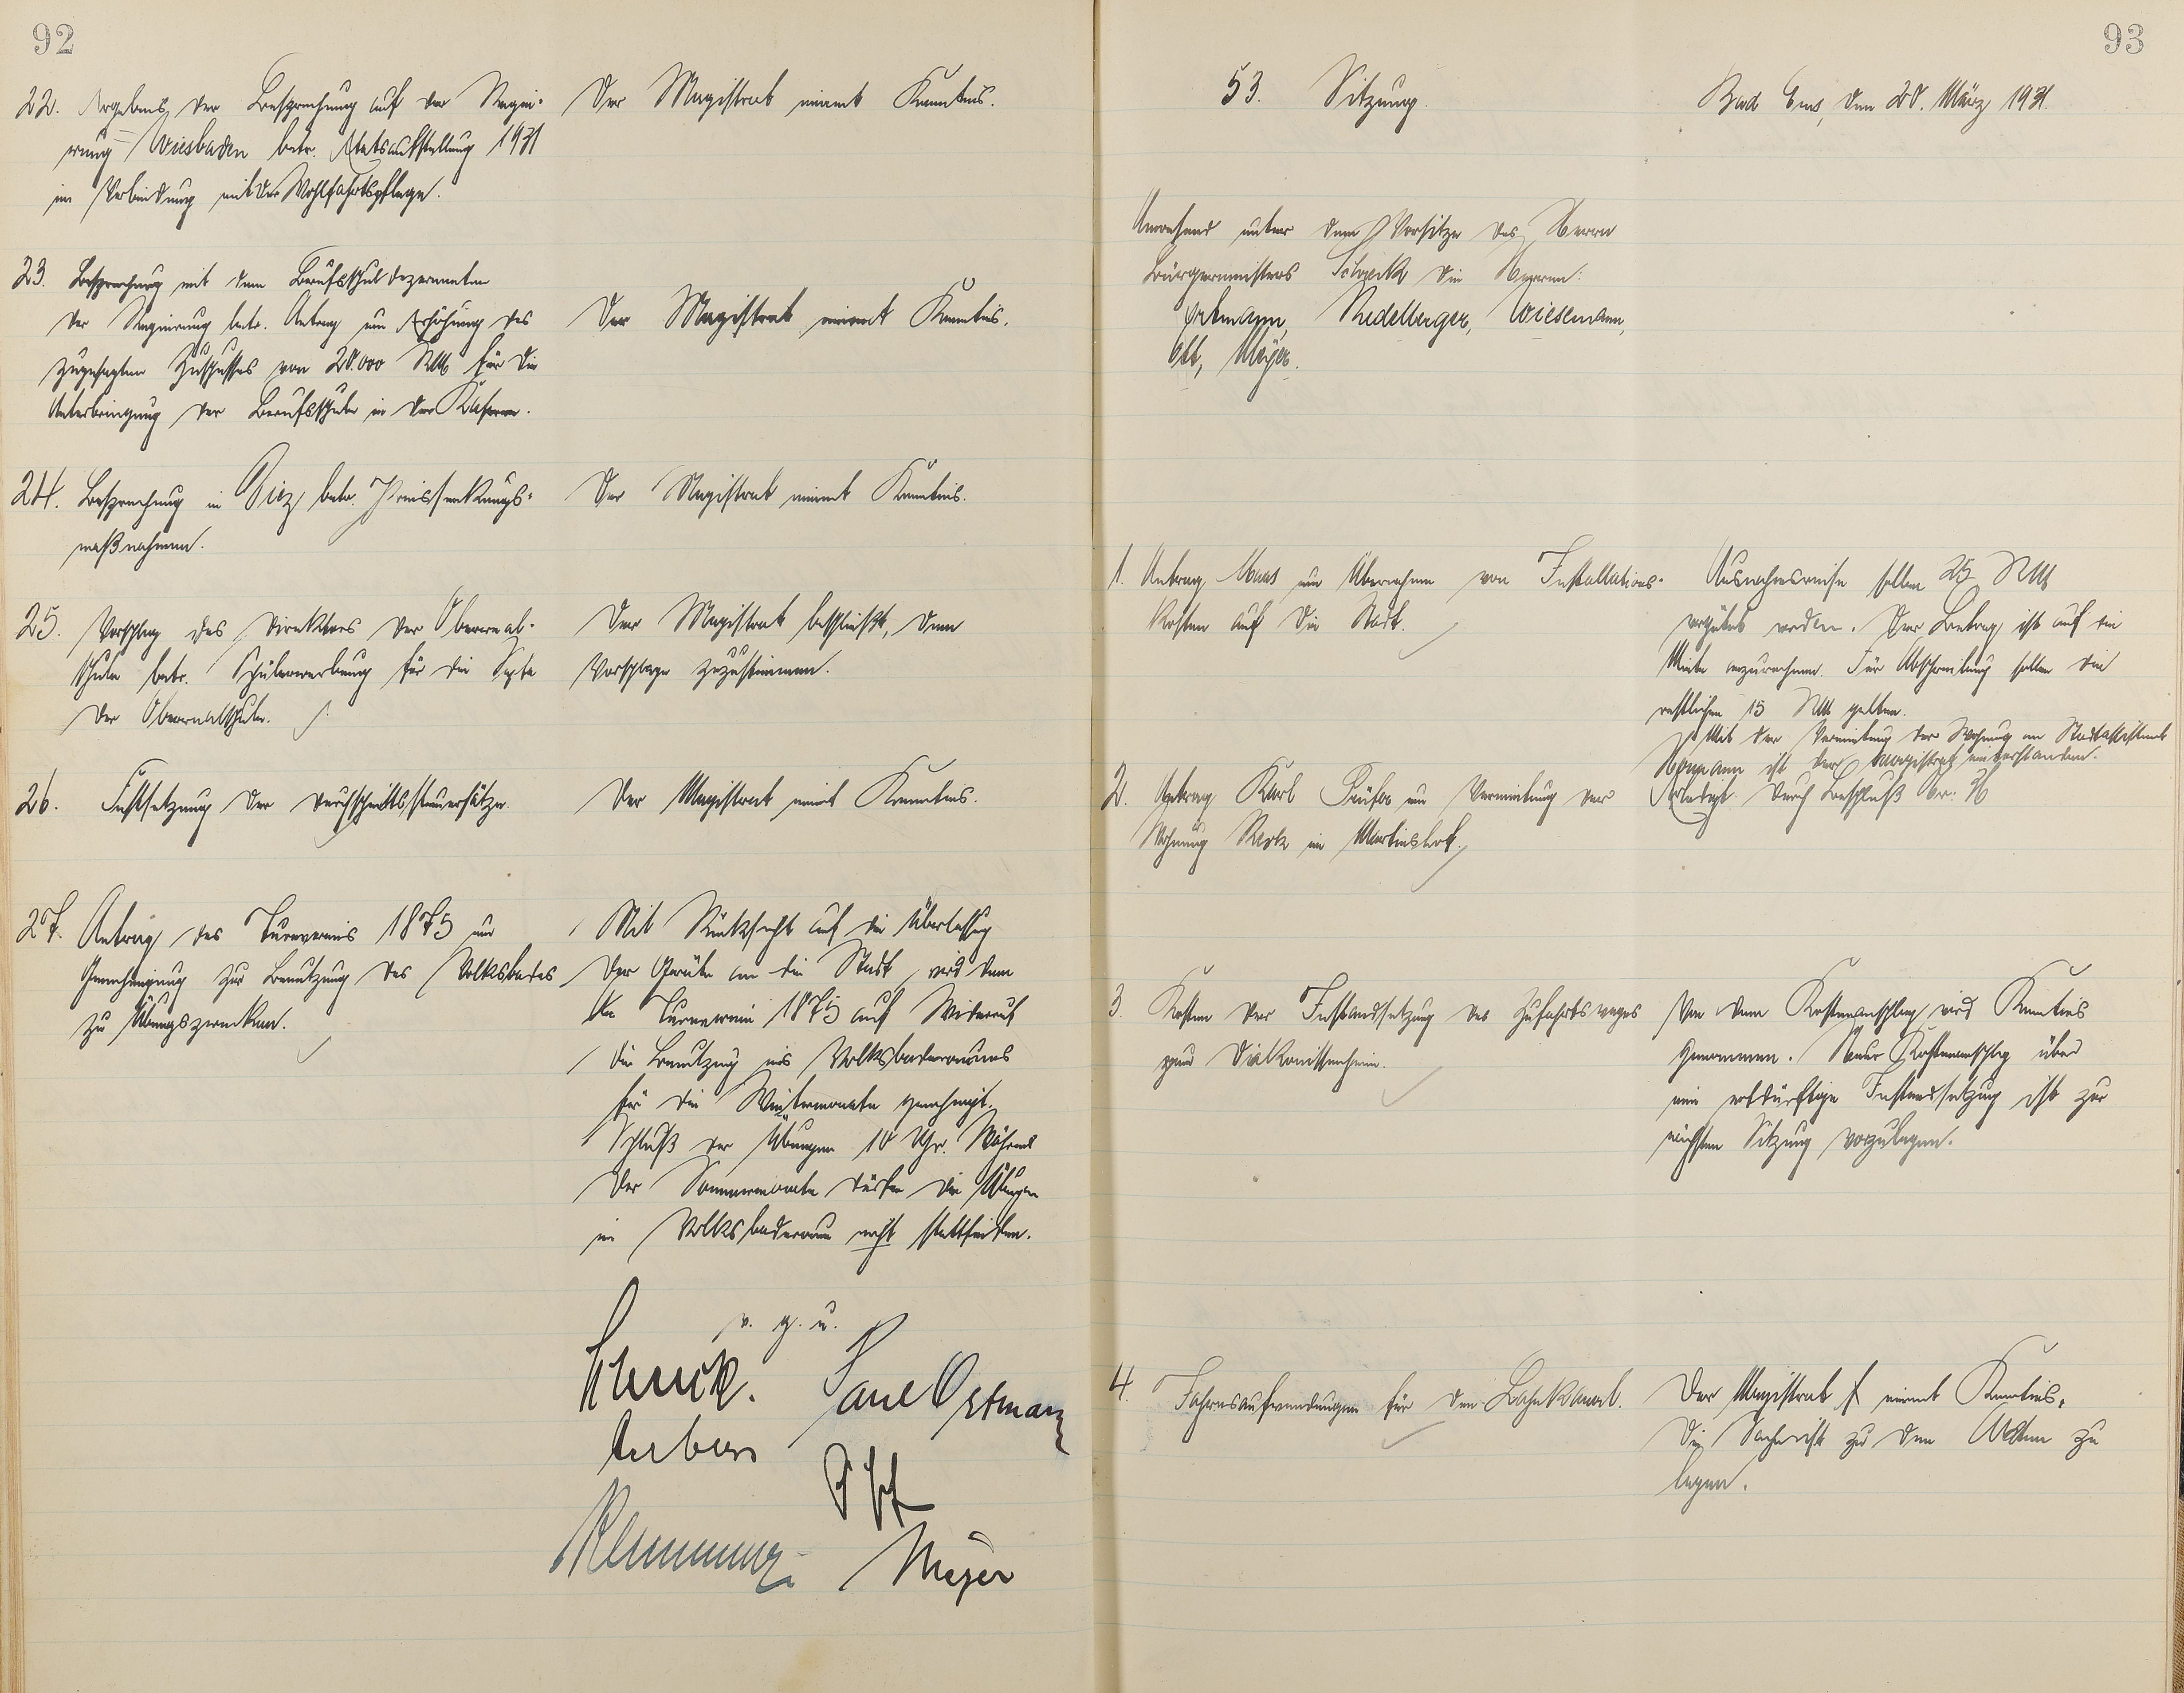 92
22. Ergebnis der Besprechung auf der Regie-
rung Wiesbaden betr. Etatsaufstellung 1931
in Verbindung mit der Wohlfahrtspflege.
Der Magistrat nimmt Kenntnis.
23. Besprechung mit dem Berufsschuldezernenten
der Regierung betr. Antrag um Erhöhung des
zugesagten Zuschusses von 20.000 RM für die
Unterbringung der Berufsschule in der Kaserne.
Der Magistrat nimmt Kenntnis.
24. Besprechung in Diez betr. Preissenkungs-
maßnahmen.
Der Magistrat nimmt Kenntnis.
25. Vorschlag des Direktors der Oberreal-
schule betr. Schülerwerbung für die Sexta
der Oberrealschule.
Der Magistrat beschließt, dem
Vorschlage zuzustimmen.
26. Festsetzung der Durchschnittssteuersätze.
Der Magistrat nimmt Kenntnis.
27. Antrag des Turnvereins 1875 um
Genehmigung zur Benutzung des Volksbades
zu Übungszwecken.
Mit Rücksicht auf die Überlassung
der Geräte an die Stadt, wird dem
Turnverein 1875 auf Widerruf
die Benutzung des Volksbaderaumes
für die Wintermonate genehmigt.
Schluß der Übungen 10 Uhr. Während
der Sommermonate dürfen die Übungen
im Volksbaderaum nicht stattfinden.
v. g. u.
Schreck. Paul Ortmann
Ott
Meyer
93
53. Sitzung.
Bad Ems, den 20. März 1931.
Anwesend unter dem Vorsitze des Herrn
Bürgermeisters Schreck die Herren:
Ortmann, Redelberger, Wiesemann,
Ott, Meyer.
1. Antrag Maas um Übernahme von Installations-
kosten auf die Stadt.
Ausnahmsweise sollen 25 RM
vergütet werden. Der Betrag ist auf die
Miete anzurechnen. Für Abschreibung sollen die
restlichen 15 RM gelten.
2. Antrag Karl um Vermietung der
Wohnung im Martinshof.
Mit der Vermietung der Wohnung an Stadtassistent
Hermann ist der Magistrat einverstanden.
Erledigt durch Beschluß Nr.
3. Kosten der Instandsetzung des Zufahrtsweges
zum Diakonissenheim.
Von dem Kostenanschlag wird Kenntnis
genommen. Neuer Kostenanschlag über
eine notdürftige Instandsetzung ist zur
nächsten Sitzung vorzulegen.
4. Jahresaufwendungen für den Bachkanal.
Der Magistrat nimmt Kenntnis.
Die Nachricht zu den Akten zu
legen.